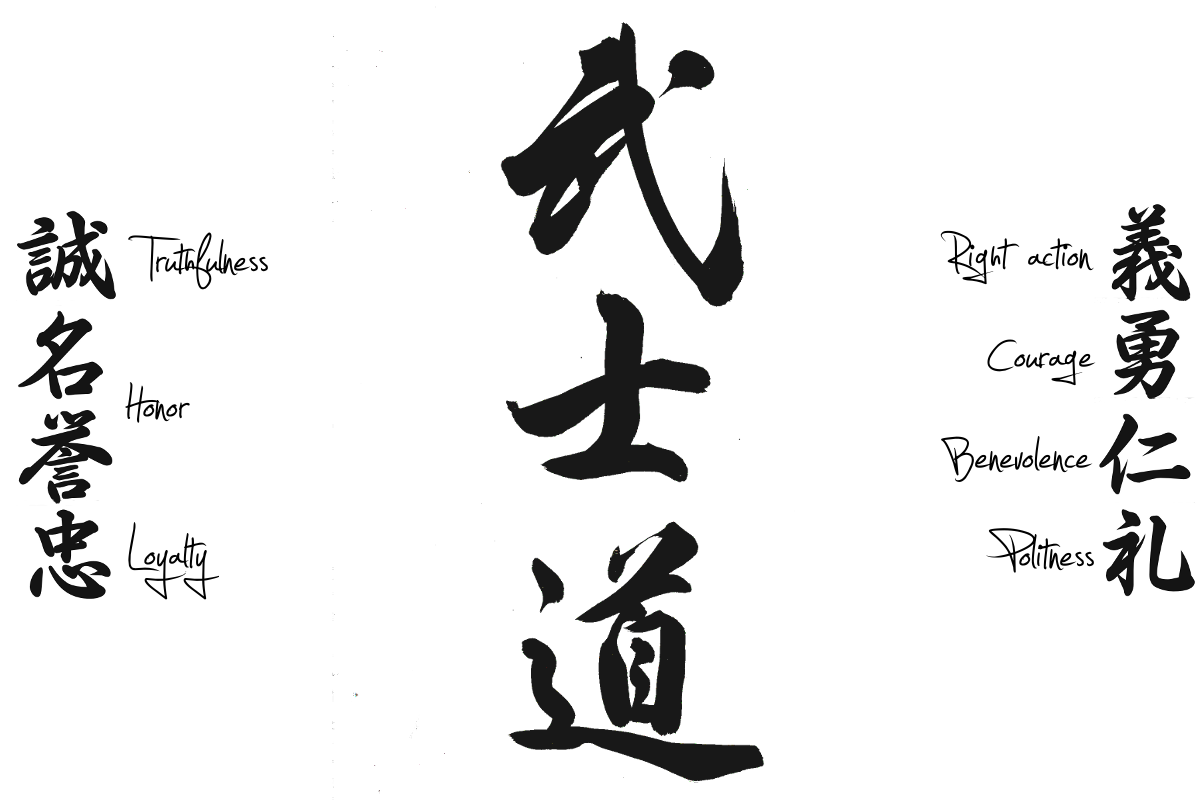 誠 Truthfulness
名誉 Honor
忠 Loyalty
武士道
Right action 義
Courage 勇
Benevolence 仁
Politness 礼